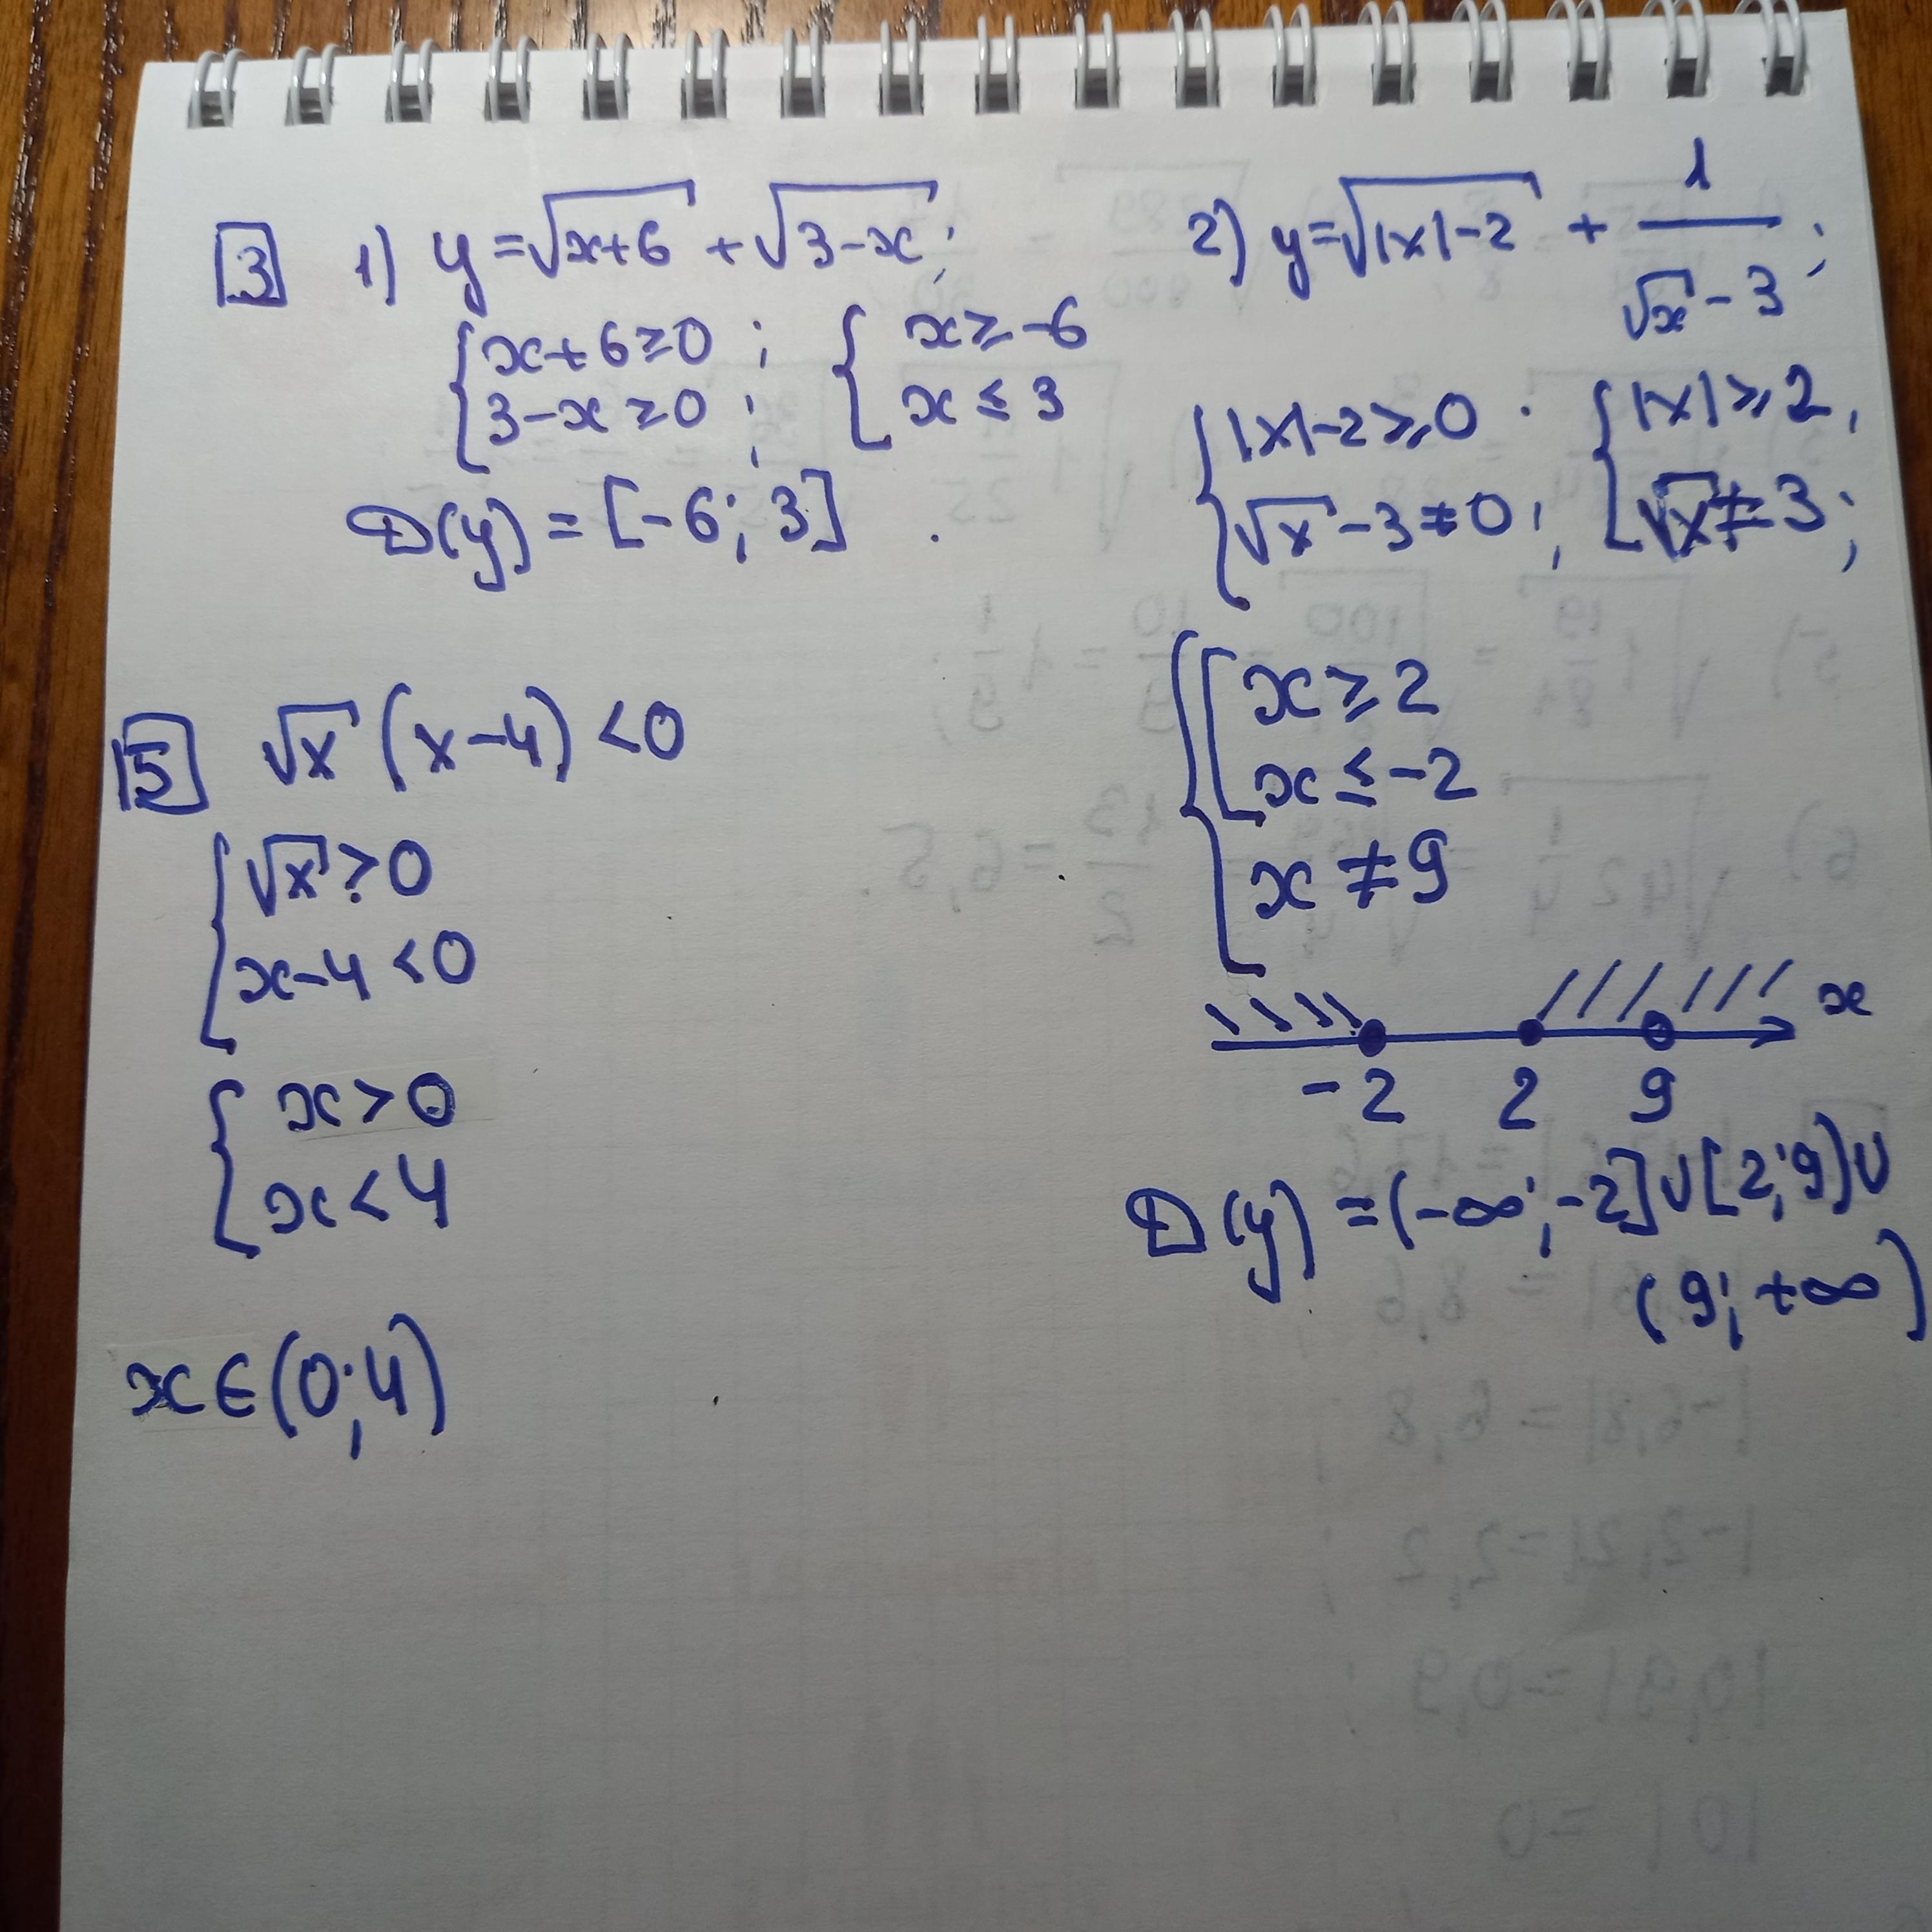 3 1) y=√(x+6) + √(3-x);
{x+6≥0; {x≥-6
{3-x≥0; {x≤3
D(y) = [-6; 3]
2) y=√(|x|-2) + 1/(√x - 3);
{|x|-2≥0 . {|x|≥2,
{√x-3≠0; {√x≠3;
{[x≥2
{[x≤-2
{x≠9
x
-2 2 9
D(y) = (-∞; -2]∪[2; 9)∪
(9; +∞)
5 √x (x-4) <0
{√x>0
{x-4<0
{x>0
{x<4
x∈(0;4)